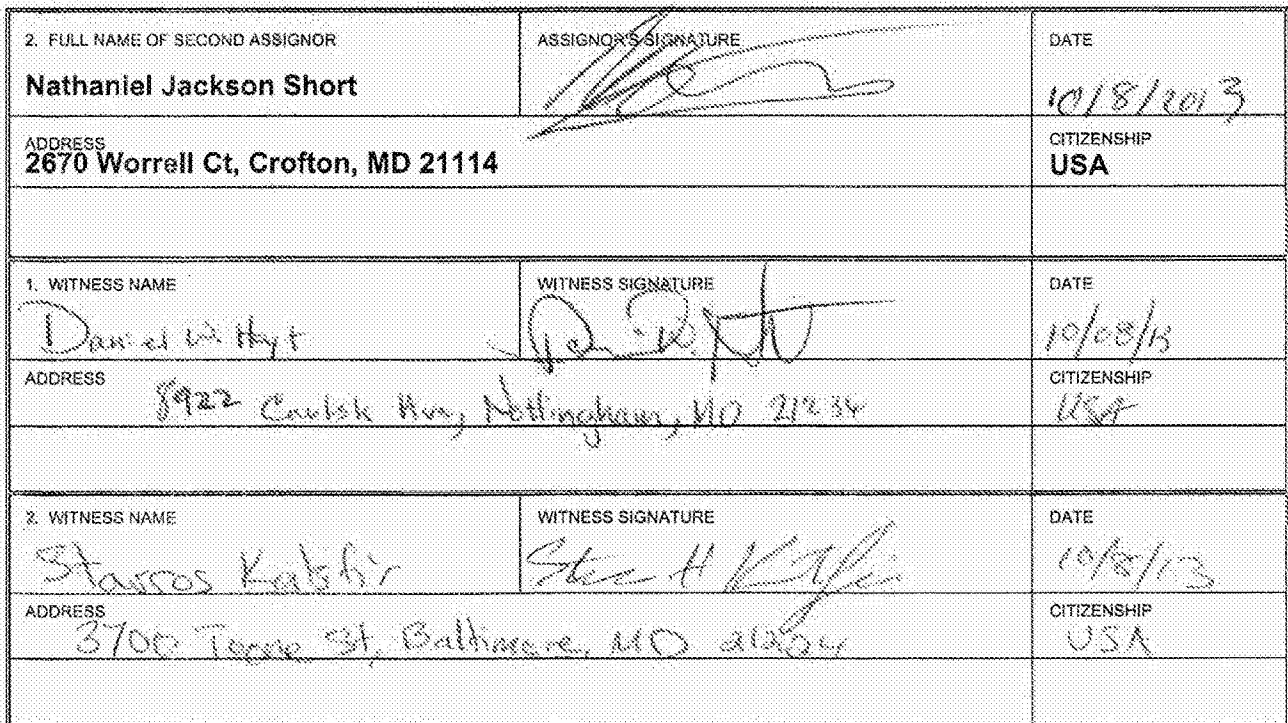 2. FULL NAME OF SECOND ASSIGNOR
Nathaniel Jackson Short
ASSIGNOR'S SIGNATURE
DATE
10/8/2013
ADDRESS
2670 Worrell Ct, Crofton, MD 21114
CITIZENSHIP
USA
1. WITNESS NAME
Daniel W.
WITNESS SIGNATURE
DATE
10/08/13
ADDRESS
8922 Nottingham, MD 21234
CITIZENSHIP
USA
2. WITNESS NAME
Stavros
WITNESS SIGNATURE
DATE
10/8/13
ADDRESS
3700 Toone St, Baltimore, MD
CITIZENSHIP
USA